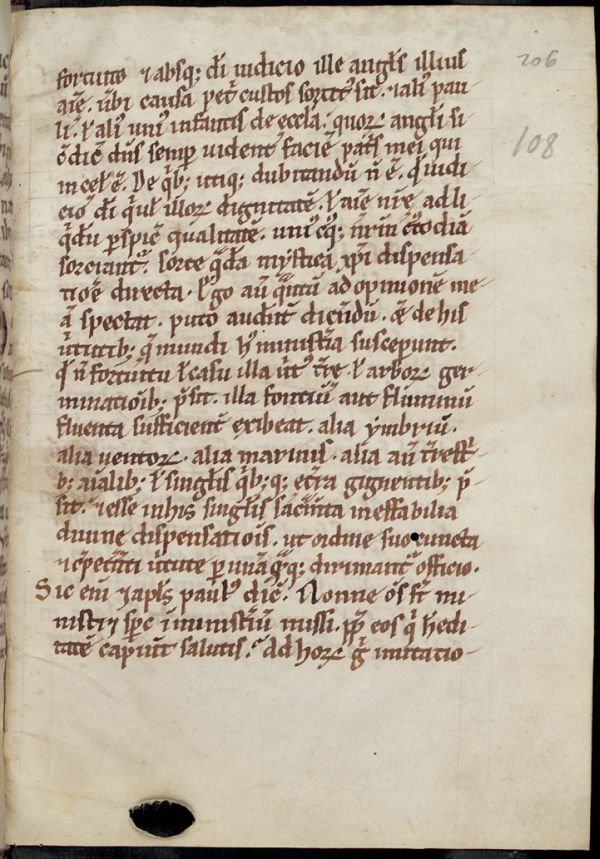 206
108
fortuito ⁊ absq; di iudicio ille angls illius
aīe. ubi causa petˀ custos sortitˀ sit. ⁊ aliˀ pau
li. ł aliˀ uniˀ infantis de eccla. quoꝝ angli si
c̄ dic̄ dn̄s semp uident faciē patˢ mei qui
in cel' ē. De qˢb; utiq; dubitandū n̄ ē. qˢ iudi
ciōˢ di qˢ ul' illoꝝ dignitatē. ł aīe nr̄e ad li
qˢdū pspic̄ qualitatē. uniˀ cˀq; nrm̄ custodiā
sorciantˢ. sorte qˢda mystica xpī dispensa
tiōe directa. Ego aū qˢntū ad opinionē me
ā spectat. puto audent̄ dicendū. & de his
uirtutib; q̄ mundi hˢ ministr̄a susceperunt.
qˢ n̄ fortuitu ł casu illa utˀ tre. ł arboꝝ ger
minatiōib; p̄sit. illa fontiū aut fluminū
fluenta sufficienť exibeat. alia ymbriū.
alia uentoꝝ. alia marinis. alia aū trestˢ
b; aīalib; ł singlis qˢb;q; et̄ra gignentib; p̄
sit. ⁊ esse in his singlis sac̄m̄ta ineffabilia
diuine dispensatiōis. ut ordine suo cuncta
⁊ cōpetn̄ti uirtute p unaqˢqˢq; dirimantˢ officio.
Sic eni ⁊ apls paulˀ dic̄. Nonne oēs sˢt mi
nistri ⁊ spc̄ in ministriū missi. pp̄ eos qˢ hedi
tatē capiūt salutis. Ad hoꝝ g̊ imitatio